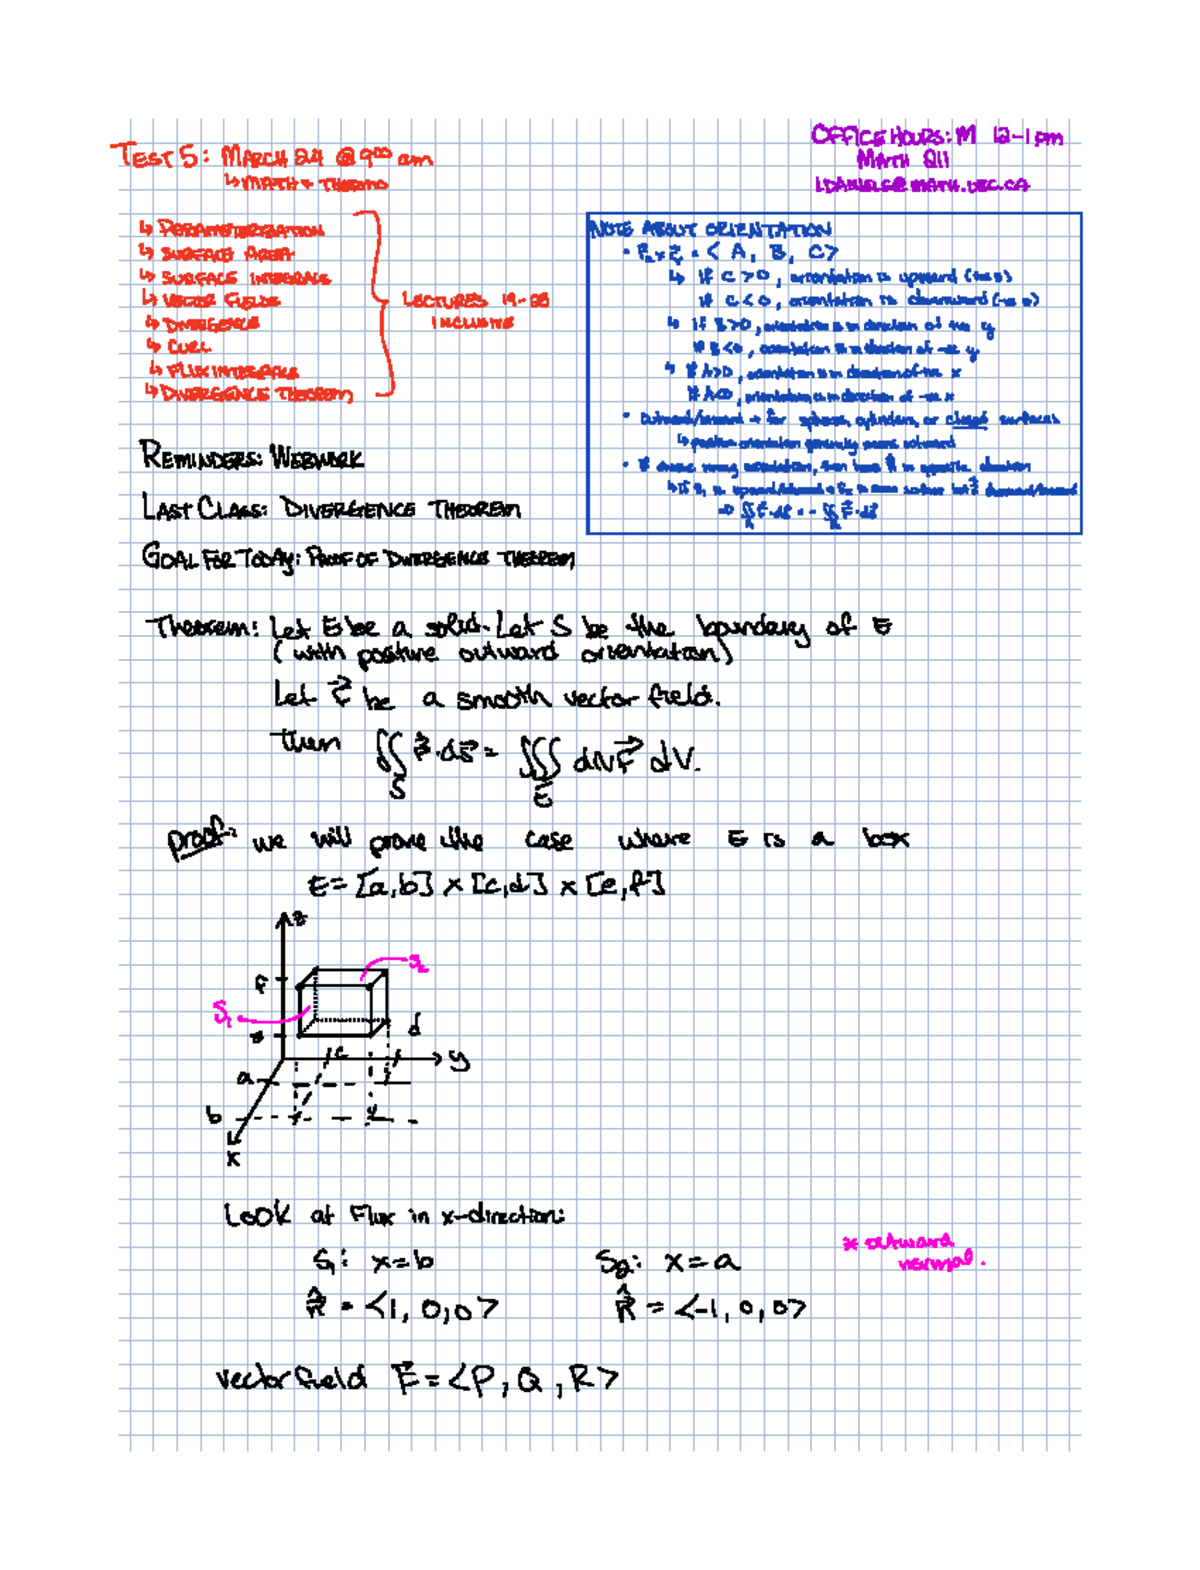 OFFICE HOURS: M 12-1pm
MATH 211
LDANIELS@MATH.UBC.CA
TEST 5: MARCH 24 @ 9:00 am
↳ MATH +
↳ PARAMETERIZATION
↳ SURFACE AREA
↳ SURFACE INTEGRALS
↳ VECTOR FIELDS
↳ DIVERGENCE
↳ CURL
↳ FLUX INTEGRALS
↳ DIVERGENCE THEOREM
LECTURES 19-28
INCLUSIVE
NOTE ABOUT ORIENTATION
• = < A, B, C>
↳ IF C > 0, orientation is upward (+ve z)
IF C < 0, orientation is downward (-ve z)
↳ IF B > 0, orientation is in direction of +ve y
IF B < 0, orientation is in direction of -ve y
↳ IF A > 0, orientation is in direction of +ve x
IF A < 0, orientation is in direction of -ve x
• Outward/inward → for sphere, cylinders, or closed surfaces
↳ positive orientation generally means outward
• If choose wrong orientation, then have n in opposite direction
REMINDERS: WEBWORK
LAST CLASS: DIVERGENCE THEOREM
GOAL FOR TODAY: PROOF OF DIVERGENCE THEOREM
Theorem: Let E be a solid. Let S be the boundary of E
(with positive outward orientation)
Let F⃗ be a smooth vector field.
Then ∬_S F⃗·dS⃗ = ∭_E div F⃗ dV.
Proof: we will prove the case where E is a box
E = [a,b] × [c,d] × [e,f]
z
S2
f
S1
d
e
c
y
a
b
x
Look at Flux in x-direction:
S1: x=b S2: x=a
* outward
normal.
n̂ = <1, 0, 0> n̂ = <-1, 0, 0>
vector field F⃗ = <P, Q, R>